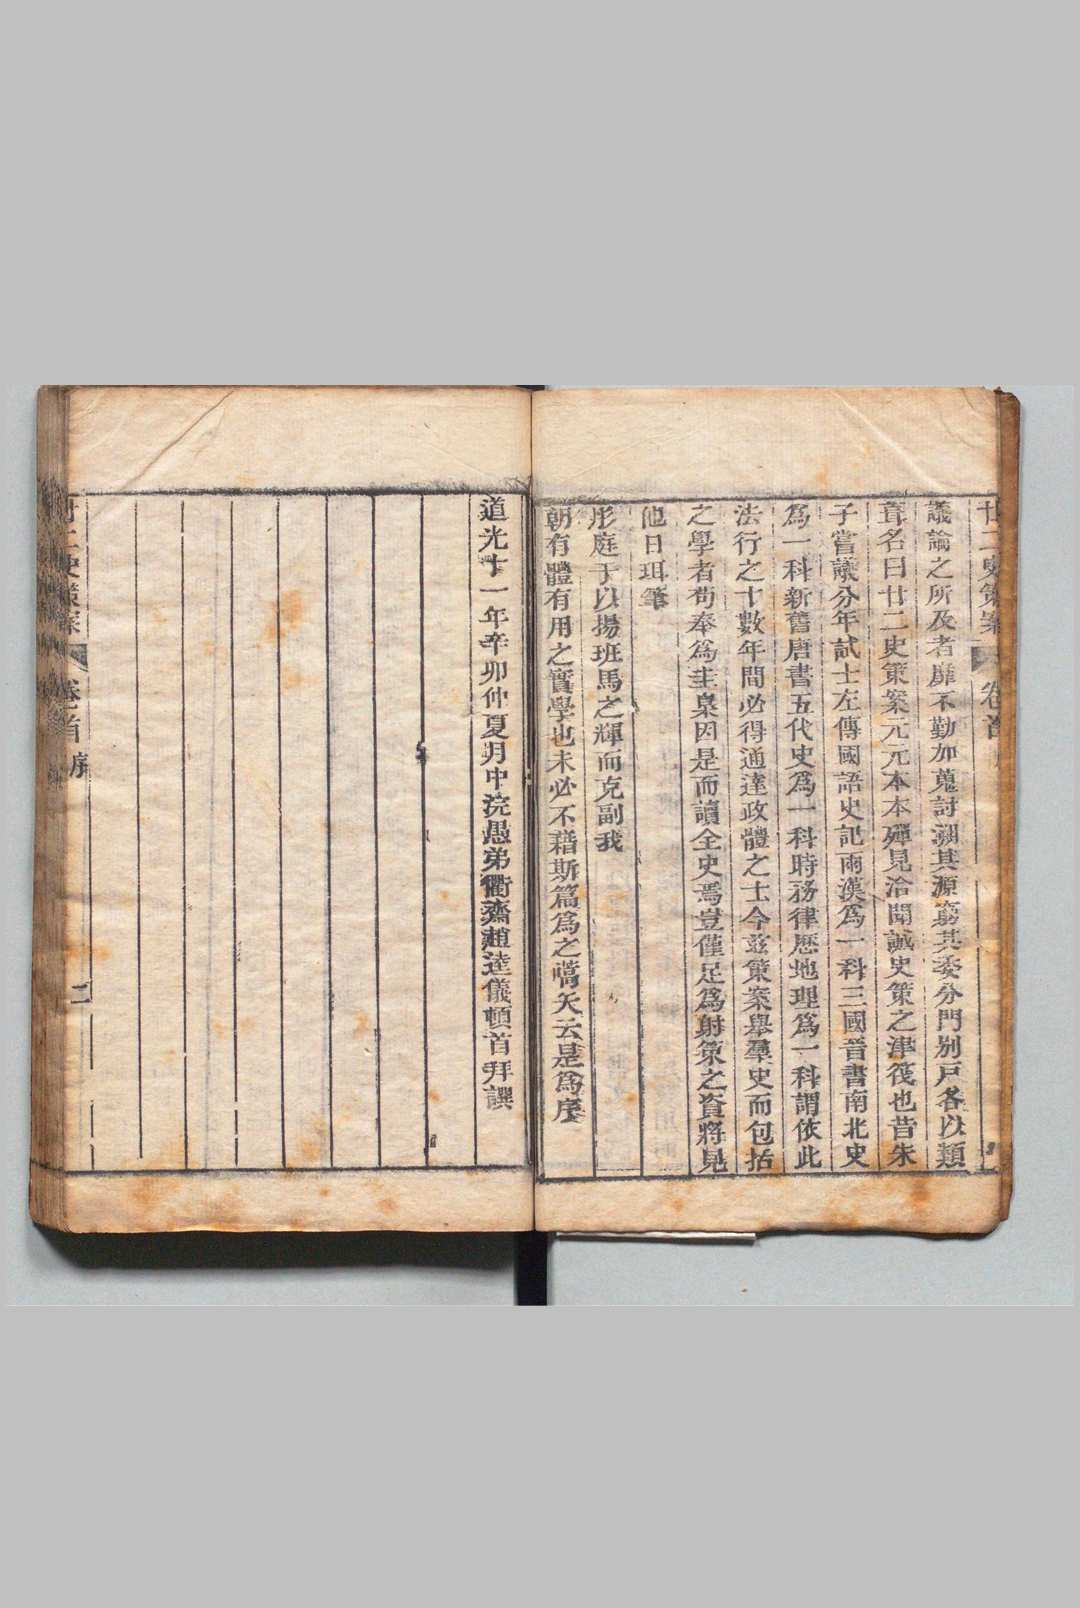 廿二史策案 卷首
議論之所及者靡不勤加蒐討溯其源窮其委分門別戸各以類
葺名曰廿二史策案元元本本殫見洽聞誠史策之津筏也昔朱
子嘗議分年試士左傳國語史記兩漢為一科三國晉書南北史
為一科新舊唐書五代史為一科時務律歷地理為一科謂依此
法行之十數年間必得通達政體之士今兹策案舉羣史而包括
之學者苟奉為圭臬因是而讀全史焉豈僅足為射策之資將見
他日珥筆
彤庭于以揚班馬之輝而克副我
朝有體有用之實學也未必不藉斯篇為之嚆矢云是為序
道光十一年辛卯仲夏月中浣愚弟衢齋趙逵儀頓首拜譔
廿二史策案 卷首 序 二